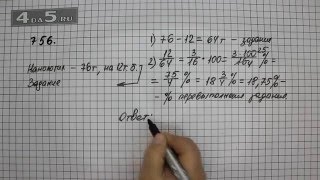 4da5.ru
756.
Намолот. - 76т, на 12т. б.
Задание
1) 76 - 12 = 64 т - задание
2) 12/64 = 3/16 · 100 = 3·100²⁵/16₄ % =
= 75/4 % = 18 3/4 % = 18,75% -
- % перевыполнения задания.
Ответ: